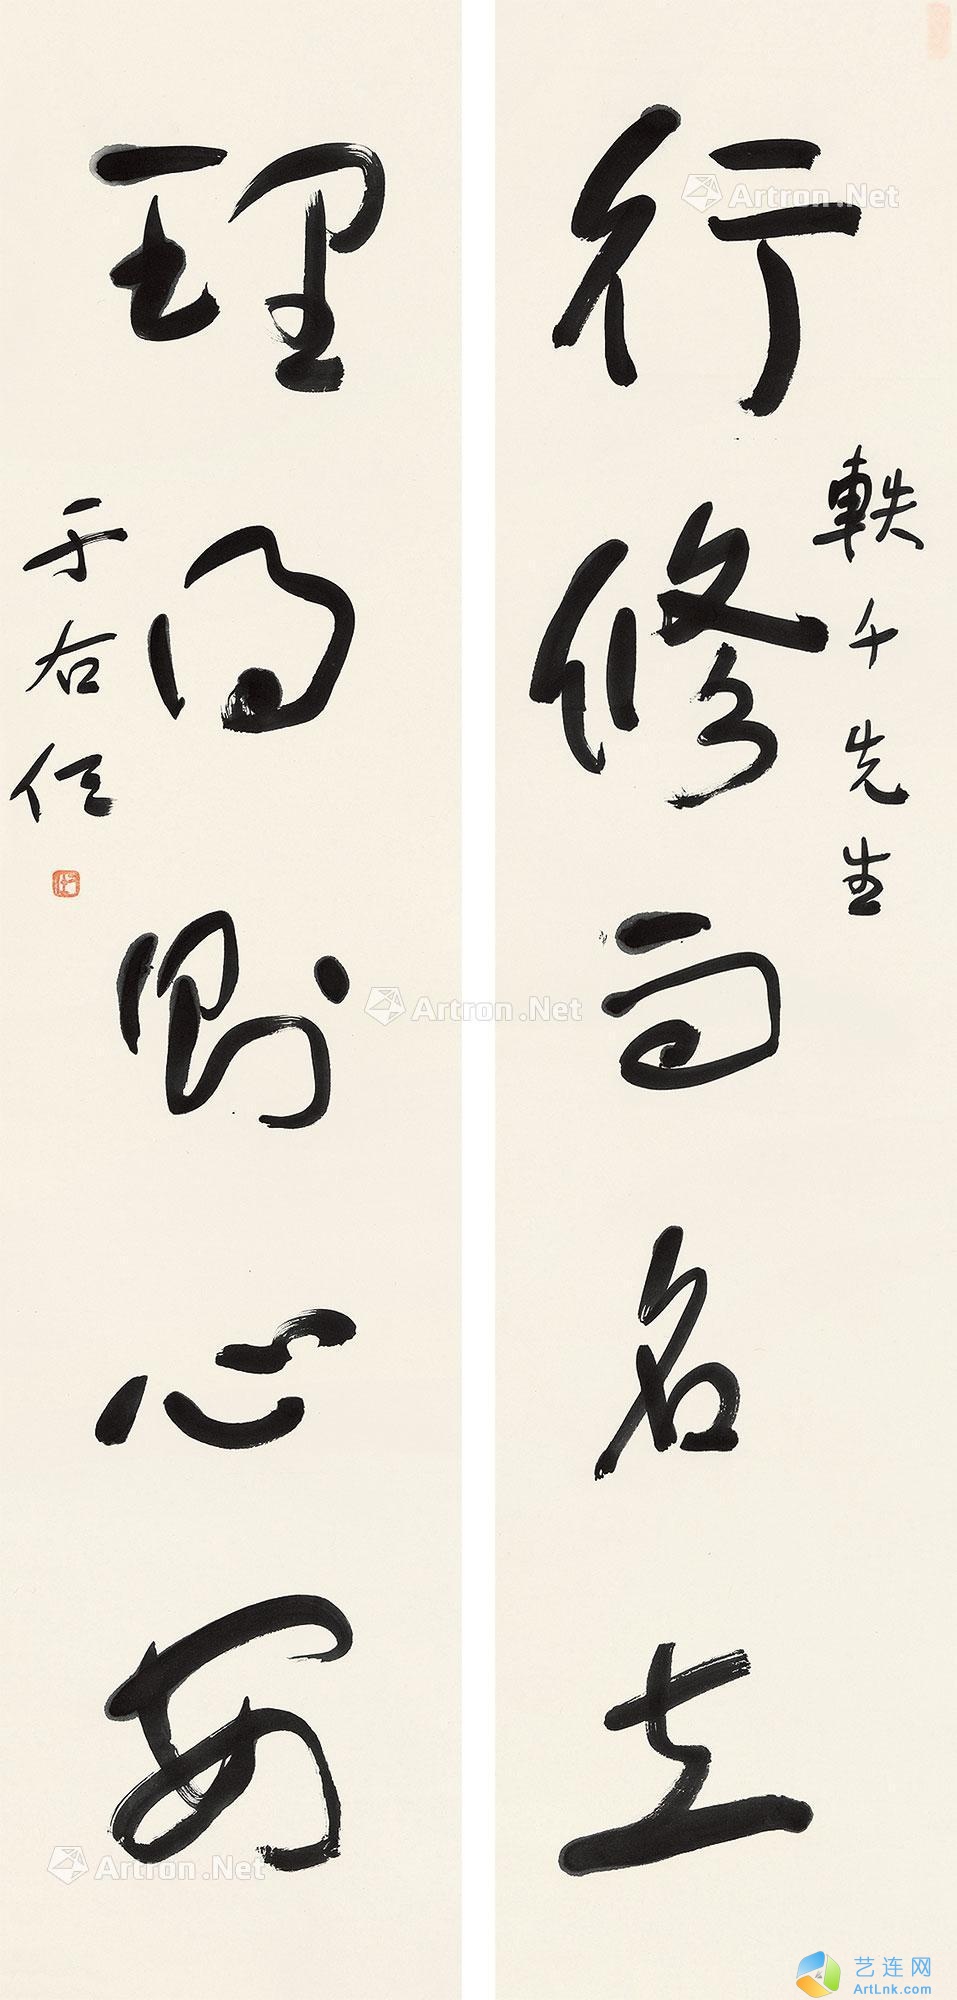 行修而名立
軼千先生
理得則心安
于右任
Artron.Net
Artron.Net
Artron.Net
艺连网
ArtLnk.com